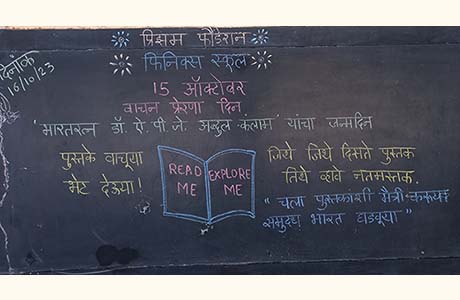 दिनांक
16/10/23
प्रिझम फौंडेशन
फिनिक्स स्कूल
15 ऑक्टोबर
वाचन प्रेरणा दिन
"भारतरत्न डॉ. ऐ. पी. जे. अब्दुल कलाम" यांचा जन्मदिन
पुस्तके वाचूया
भेट देऊया!
READ ME
EXPLORE ME
जिथे जिथे दिसते पुस्तक
तिथे व्हावे नतमस्तक.
"चला पुस्तकांशी मैत्री करूया
समृद्ध भारत घडवूया"